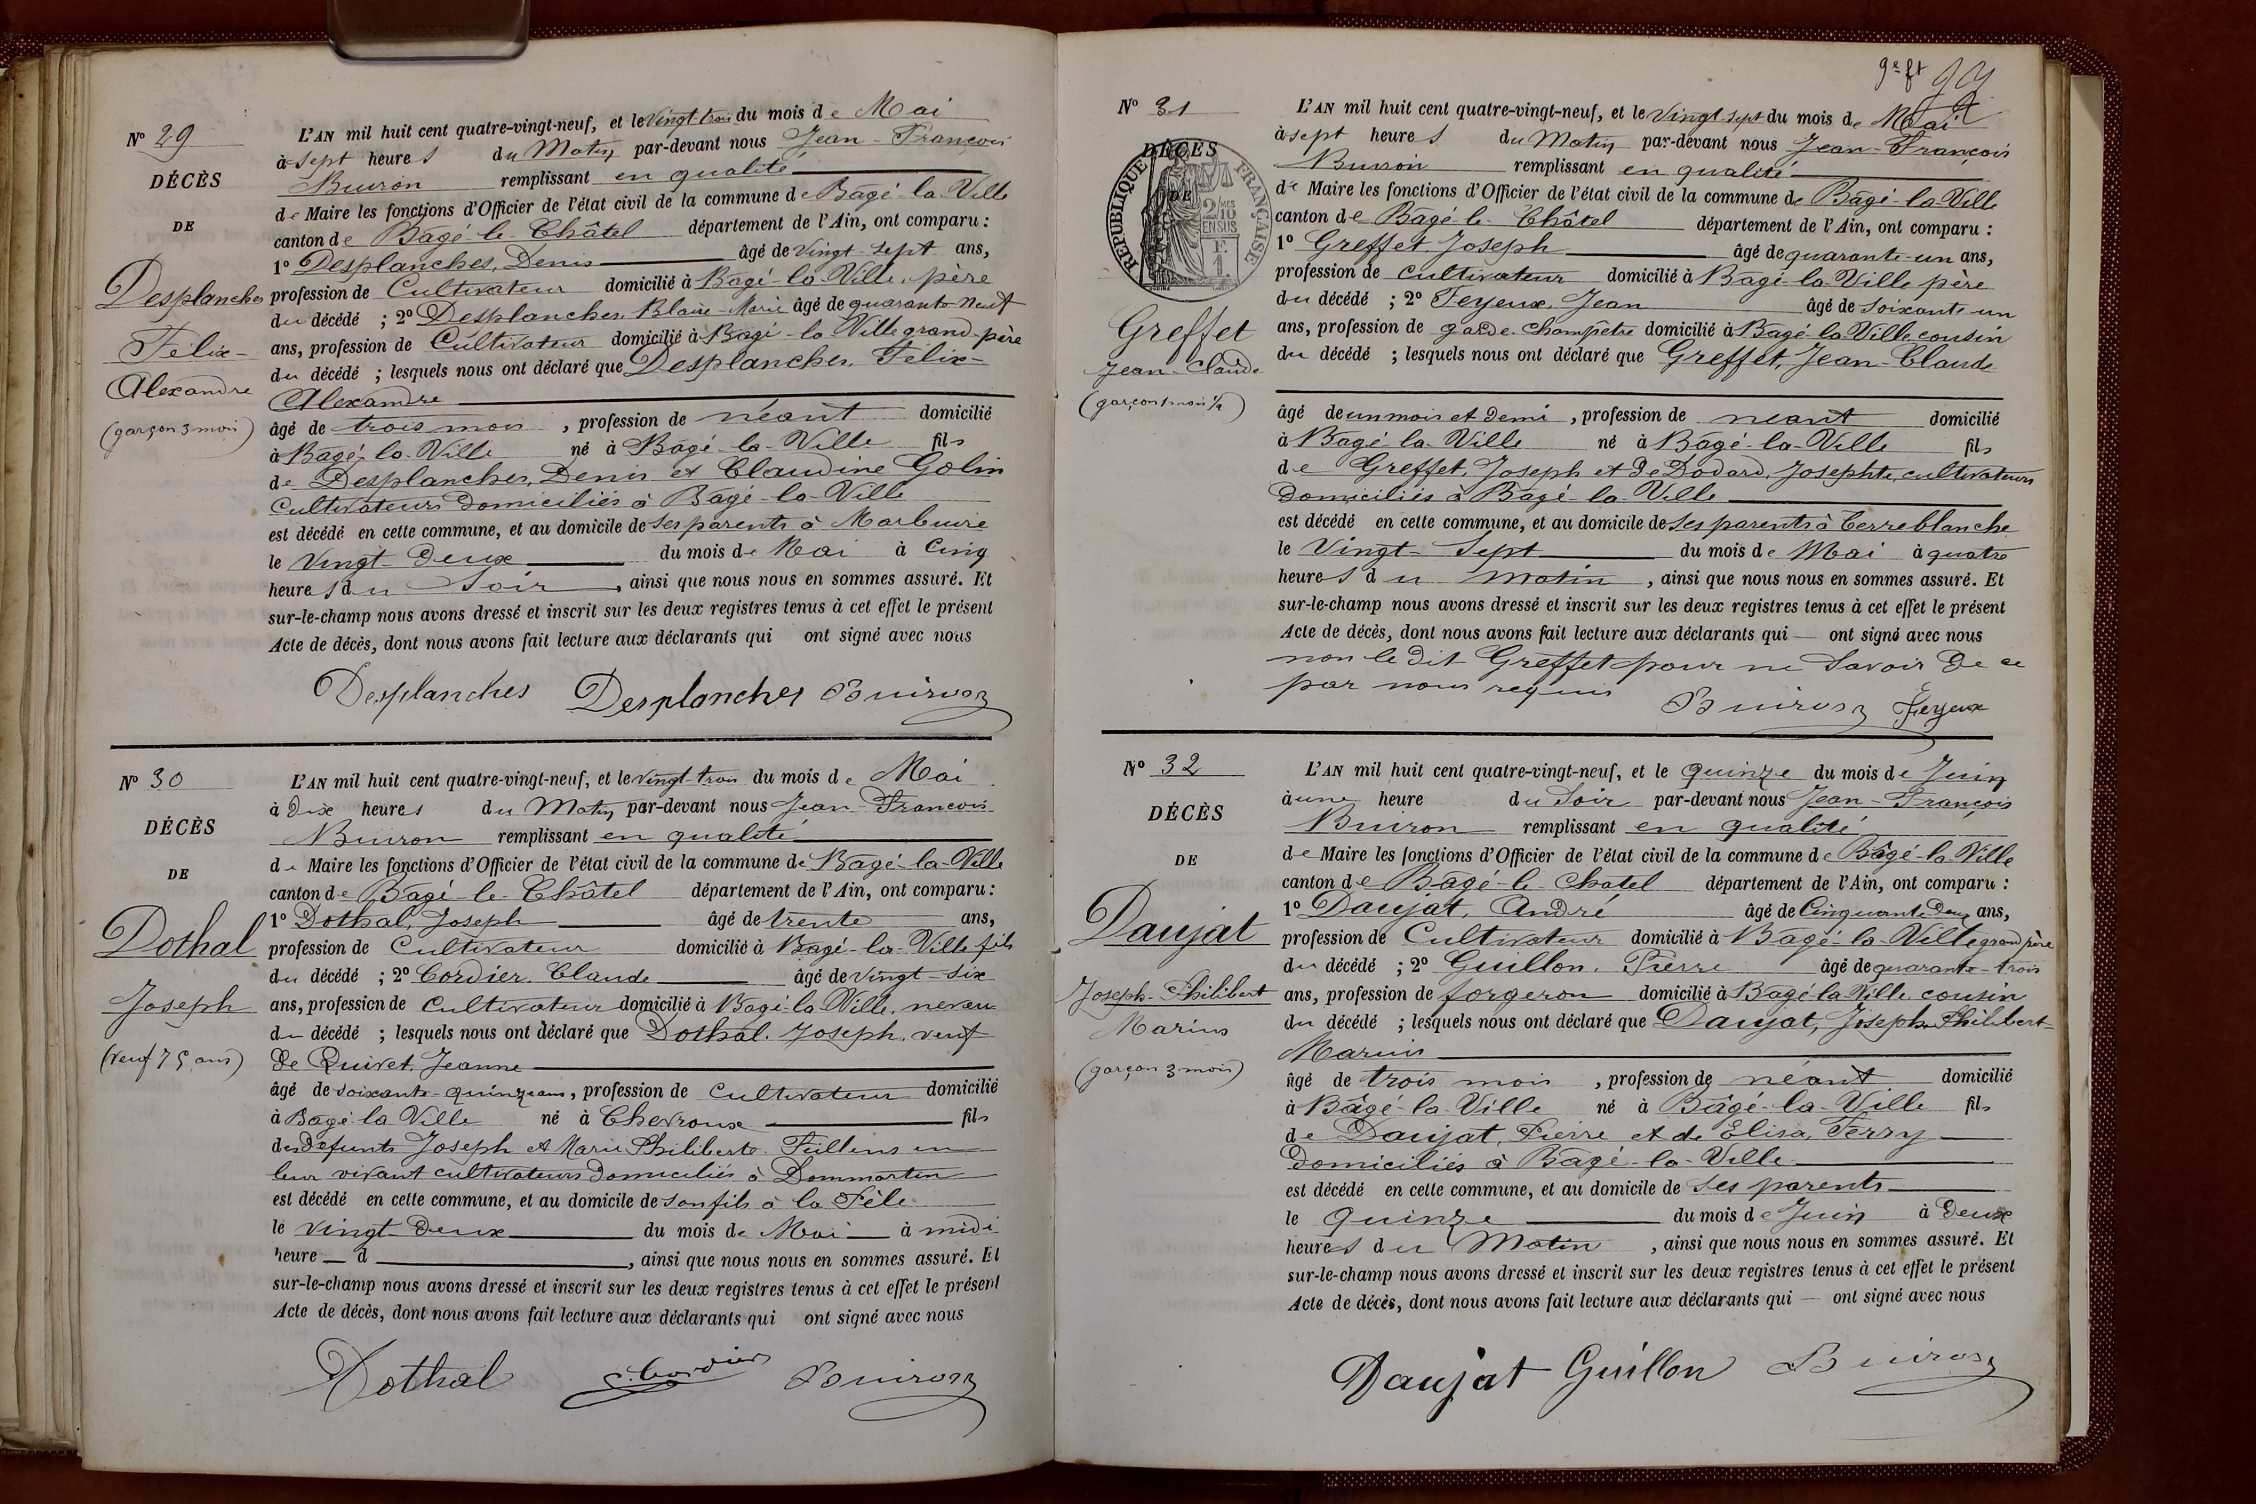 Nº 29
DÉCÈS
DE
Desplanches
Félix-
Alexandre
(garçon 3 mois)
L'AN mil huit cent quatre-vingt-neuf, et le Vingt-trois du mois de Mai
à sept heures du Matin par-devant nous Jean-François
Buiron remplissant en qualité
de Maire les fonctions d'Officier de l'état civil de la commune de Bagé-la-Ville
canton de Bagé-le-Châtel département de l'Ain, ont comparu :
1º Desplanches, Denis âgé de Vingt-sept ans,
profession de Cultivateur domicilié à Bagé-la-Ville, père
du décédé ; 2º Desplanches, Blaise-Marie âgé de quarante-neuf
ans, profession de Cultivateur domicilié à Bagé-la-Ville grand-père
du décédé ; lesquels nous ont déclaré que Desplanches, Félix-
Alexandre
âgé de trois mois, profession de néant domicilié
à Bagé-la-Ville né à Bagé-la-Ville fils
de Desplanches, Denis et Claudine Golin
Cultivateurs domiciliés à Bagé-la-Ville
est décédé en cette commune, et au domicile de ses parents à Marbuire
le Vingt-Deux du mois de Mai à Cinq
heures du Soir, ainsi que nous nous en sommes assuré. Et
sur-le-champ nous avons dressé et inscrit sur les deux registres tenus à cet effet le présent
Acte de décès, dont nous avons fait lecture aux déclarants qui ont signé avec nous
Desplanches Desplanches Buiron
Nº 30
DÉCÈS
DE
Dothal
Joseph
(veuf 75 ans)
L'AN mil huit cent quatre-vingt-neuf, et le vingt-trois du mois de Mai
à Dix heures du Matin par-devant nous Jean-François
Buiron remplissant en qualité
de Maire les fonctions d'Officier de l'état civil de la commune de Bagé-la-Ville
canton de Bagé-le-Châtel département de l'Ain, ont comparu :
1º Dothal, Joseph âgé de trente ans,
profession de Cultivateur domicilié à Bagé-la-Ville fils
du décédé ; 2º Cordier, Claude âgé de vingt-six
ans, profession de Cultivateur domicilié à Bagé-la-Ville, neveu
du décédé ; lesquels nous ont déclaré que Dothal, Joseph, veuf
de Quivet, Jeanne
âgé de soixante-quinze ans, profession de Cultivateur domicilié
à Bagé-la-Ville né à Chevroux fils
des Defunts Joseph et Marie Philiberte Fullens en
leur vivant cultivateurs domiciliés à Dommartin
est décédé en cette commune, et au domicile de son fils à la Fèle
le vingt-Deux du mois de Mai à midi
heure d, ainsi que nous nous en sommes assuré. Et
sur-le-champ nous avons dressé et inscrit sur les deux registres tenus à cet effet le présent
Acte de décès, dont nous avons fait lecture aux déclarants qui ont signé avec nous
Dothal C. Cordier Buiron
9e ft
Nº 31
DÉCÈS
DE
RÉPUBLIQUE FRANÇAISE
2/10 MES
EN SUS
F.
1.
Greffet
Jean-Claude
(garçon 1 mois ½)
L'AN mil huit cent quatre-vingt-neuf, et le Vingt-sept du mois de Mai
à sept heures du Matin par-devant nous Jean-François
Buiron remplissant en qualité
de Maire les fonctions d'Officier de l'état civil de la commune de Bagé-la-Ville
canton de Bagé-le-Châtel département de l'Ain, ont comparu :
1º Greffet, Joseph âgé de quarante-un ans,
profession de Cultivateur domicilié à Bagé-la-Ville père
du décédé ; 2º Feyeux, Jean âgé de Soixante-un
ans, profession de garde-champêtre domicilié à Bagé-la-Ville cousin
du décédé ; lesquels nous ont déclaré que Greffet, Jean-Claude
âgé de un mois et demi, profession de néant domicilié
à Bagé-la-Ville né à Bagé-la-Ville fils
de Greffet, Joseph et de Dodard, Josephte, cultivateurs
Domiciliés à Bagé-la-Ville
est décédé en cette commune, et au domicile de ses parents à Terreblanche
le Vingt-Sept du mois de Mai à quatre
heures du matin, ainsi que nous nous en sommes assuré. Et
sur-le-champ nous avons dressé et inscrit sur les deux registres tenus à cet effet le présent
Acte de décès, dont nous avons fait lecture aux déclarants qui — ont signé avec nous
non le dit Greffet pour ne Savoir de ce
par nous requis
Buiron Feyeux
Nº 32
DÉCÈS
DE
Daujat
Joseph-Philibert
Marius
(garçon 3 mois)
L'AN mil huit cent quatre-vingt-neuf, et le quinze du mois de Juin
à une heure du Soir par-devant nous Jean-François
Buiron remplissant en qualité
de Maire les fonctions d'Officier de l'état civil de la commune de Bâgé-la-Ville
canton de Bagé-le-Chatel département de l'Ain, ont comparu :
1º Daujat, André âgé de Cinquante Deux ans,
profession de Cultivateur domicilié à Bagé-la-Ville grand père
du décédé ; 2º Guillon, Pierre âgé de quarante-trois
ans, profession de forgeron domicilié à Bagé-la-Ville, cousin
du décédé ; lesquels nous ont déclaré que Daujat, Joseph-Philibert-
Marius
âgé de trois mois, profession de néant domicilié
à Bâgé-la-Ville né à Bâgé-la-Ville fils
de Daujat, Pierre et de Elisa, Ferry
Domiciliés à Bagé-la-Ville
est décédé en cette commune, et au domicile de ses parents
le quinze du mois de Juin à Deux
heures du Matin, ainsi que nous nous en sommes assuré. Et
sur-le-champ nous avons dressé et inscrit sur les deux registres tenus à cet effet le présent
Acte de décès, dont nous avons fait lecture aux déclarants qui — ont signé avec nous
Daujat Guillon Buiron